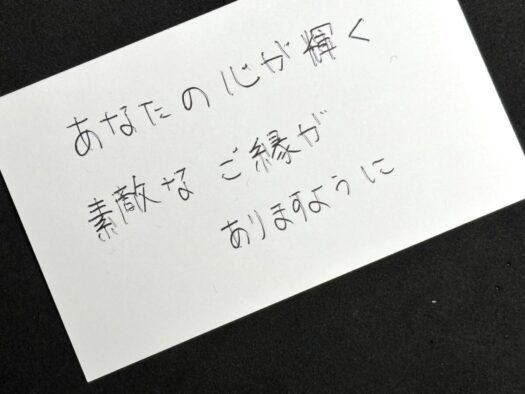 あなたの心が輝く
素敵な ご縁が
ありますように